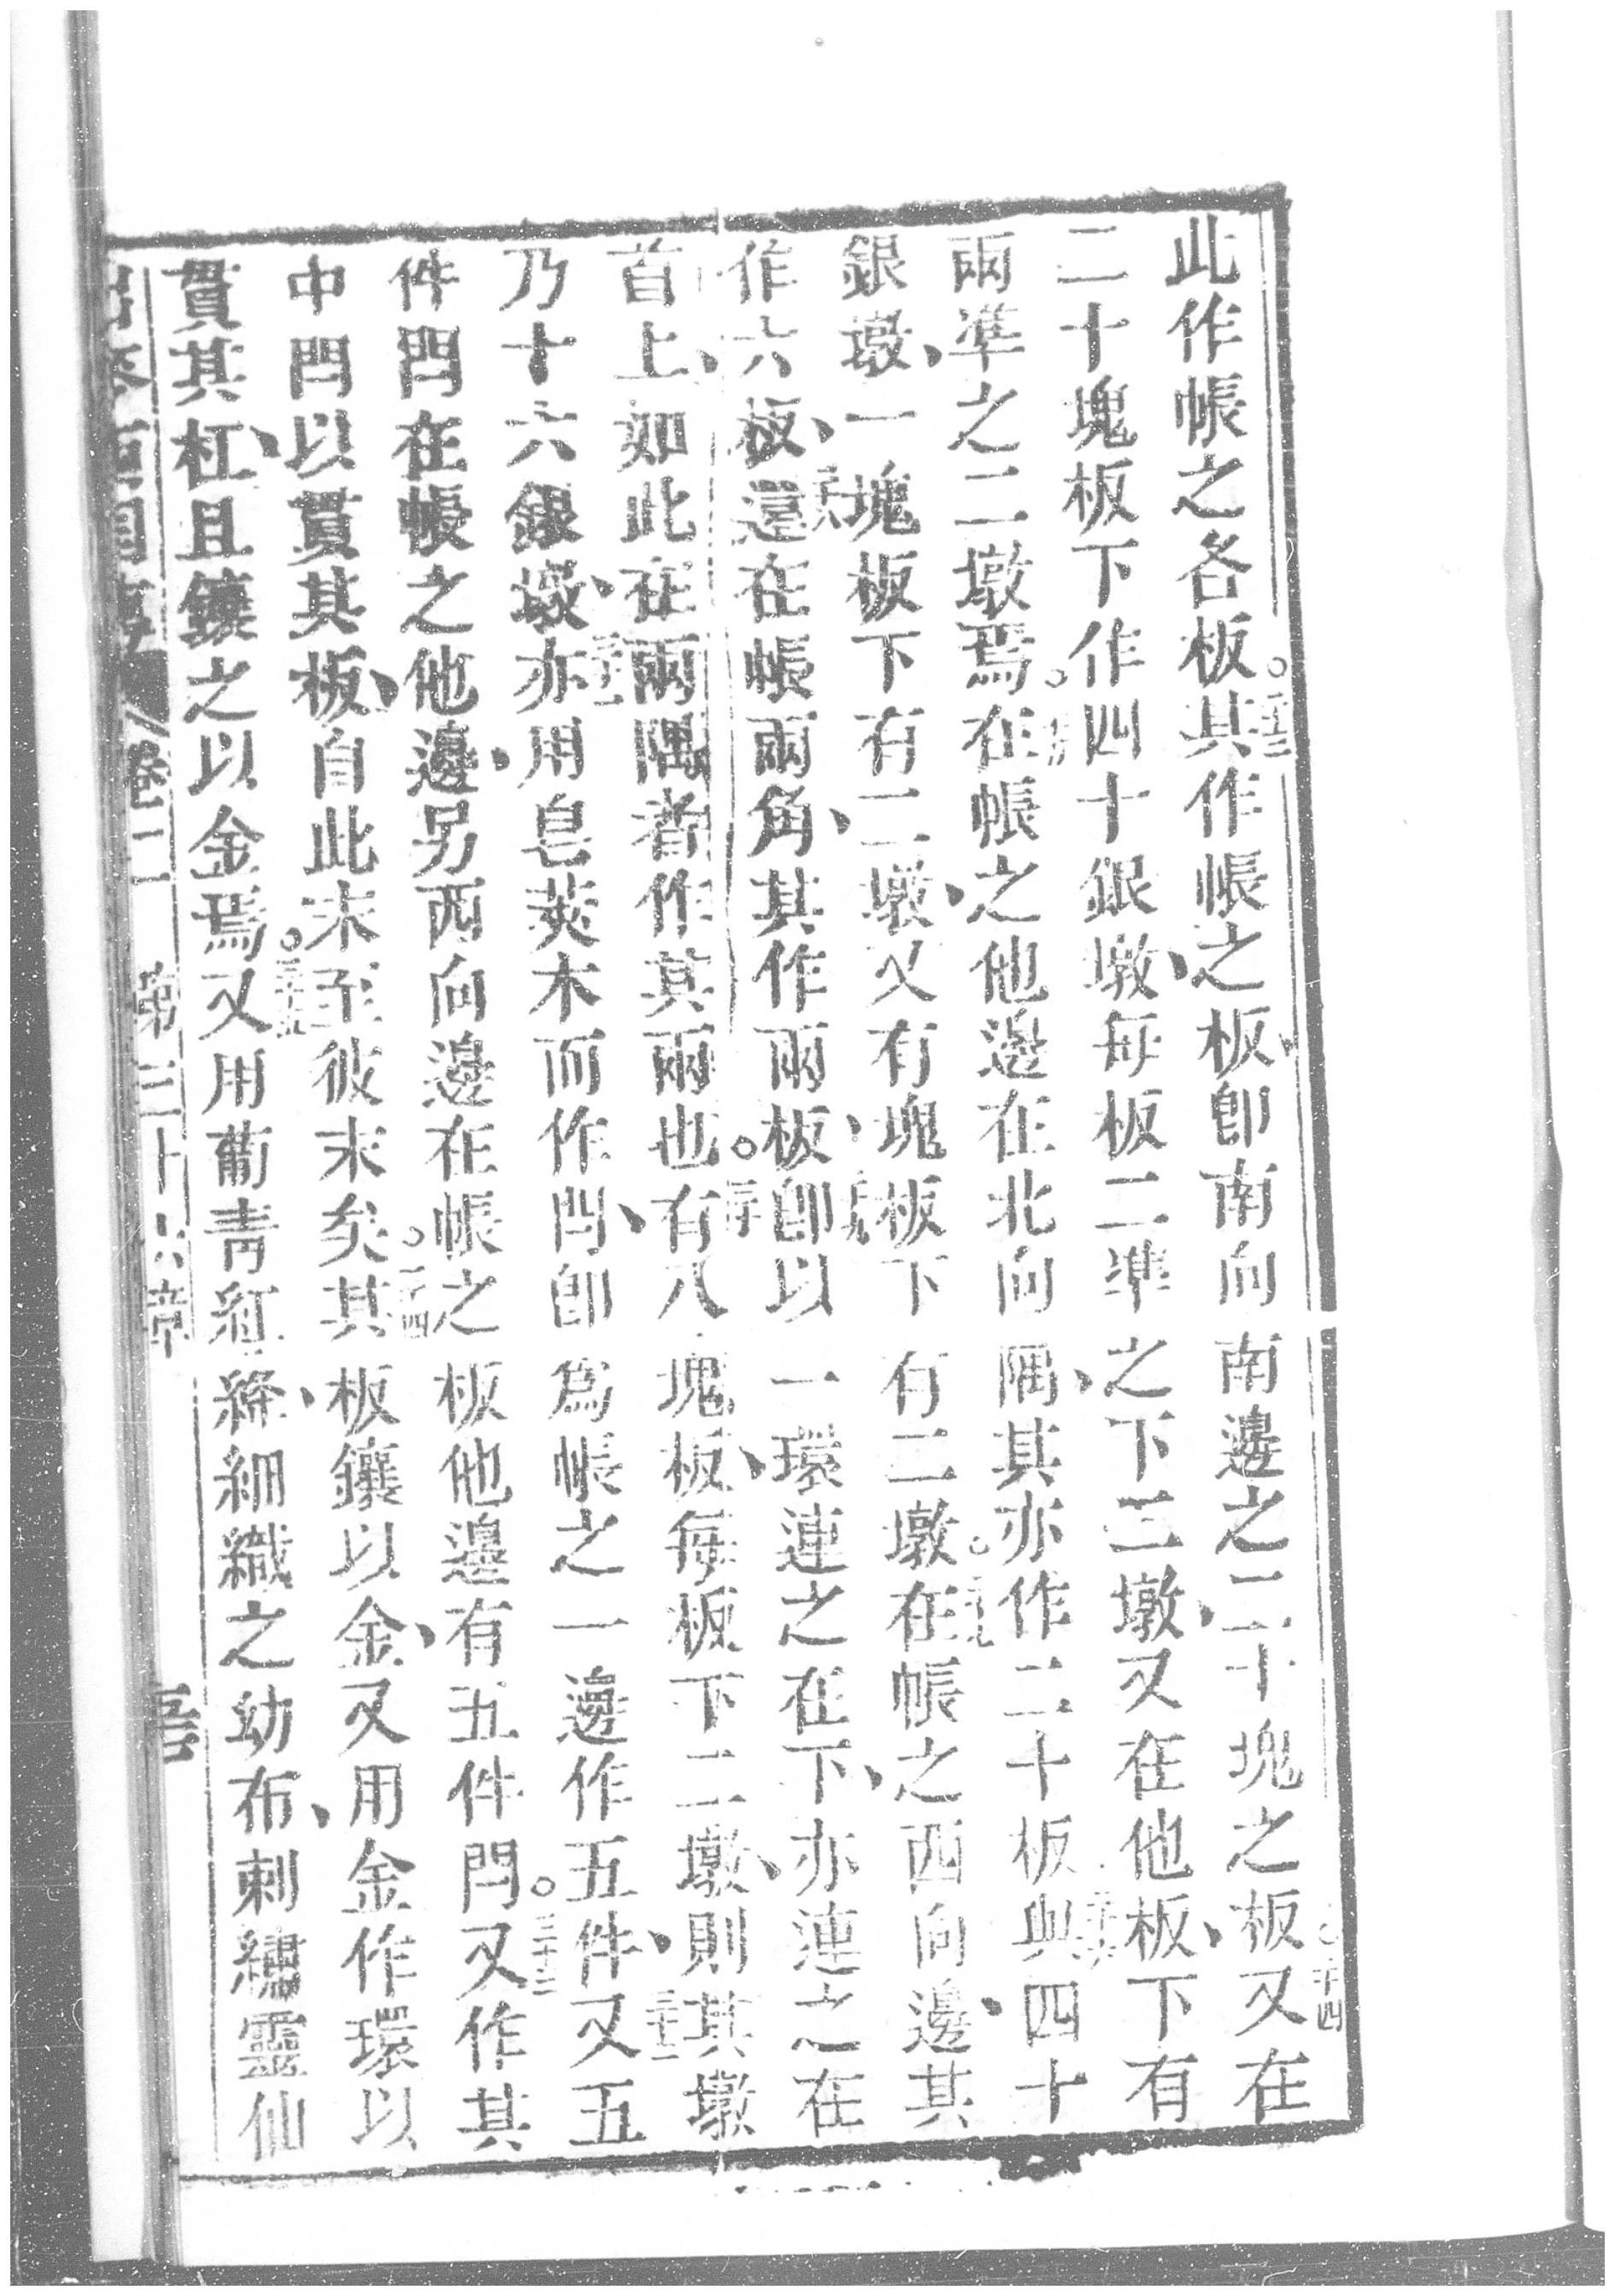 此作帳之各板。二十三其作帳之板、卽南向南邊之二十塊之板。二十四又在
二十塊板下作四十銀墩、每板二準之下二墩、又在他板、下有
兩準之二墩焉。二十五在帳之他邊在北向隅、其亦作二十板。二十六與四十
銀墩、一塊板下有二墩、又有塊板下有二墩。二十七在帳之西向邊、其
作六板、二十八還在帳兩角、其作兩板、二十九卽以一環連之在下、亦連之在
首上、如此在兩隅者作其兩也。三十有八塊板、每板下二墩、則其墩
乃十六銀墩、三十一亦用皂莢木而作閂、卽爲帳之一邊作五件、三十二又五
件閂在帳之他邊、另西向邊在帳之板他邊有五件閂。三十三又作其
中閂以貫其板、自此末至彼末矣。三十四其板鑲以金、又用金作環以
貫其杠、且鑲之以金焉。三十五又用葡青紅絳、細織之幼布、刺繡靈仙
卷二 第三十六章